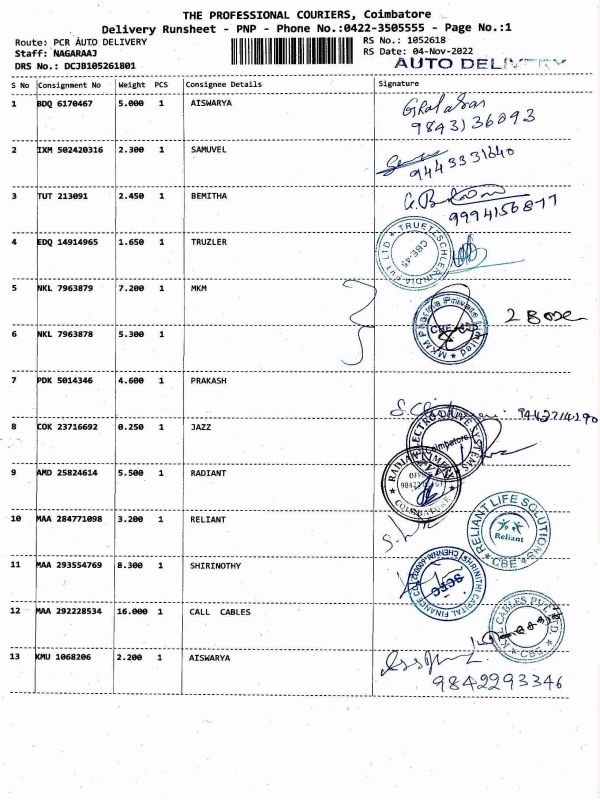 THE PROFESSIONAL COURIERS, Coimbatore
Delivery Runsheet - PNP - Phone No.:0422-3505555 - Page No.:1
Route: PCR AUTO DELIVERY
RS No.: 1052618
Staff: NAGARAAJ
RS Date: 04-Nov-2022
DRS No.: DCJB105261801
AUTO DELIVERY
S No Consignment No Weight PCS Consignee Details Signature
1 BDQ 6170467 5.000 1 AISWARYA
9843136093
2 IXM 502420316 2.300 1 SAMUVEL
9443331640
3 TUT 213091 2.450 1 BEMITHA
9994156877
4 EDQ 14914965 1.650 1 TRUZLER
TRUETZSCHLER INDIA PVT LTD
CBE-45
5 NKL 7963879 7.200 1 MKM
MKM Pharma Private Limited
2 Box
6 NKL 7963878 5.300 1
7 PDK 5014346 4.600 1 PRAKASH
8 COK 23716692 0.250 1 JAZZ
ELECTRO DRIVE SYSTEMS
Coimbatore
9 AMD 25824614 5.500 1 RADIANT
RADIANT
10 MAA 284771098 3.200 1 RELIANT
RELIANT LIFE SOLUTIONS
Reliant
CBE
11 MAA 293554769 8.300 1 SHIRINOTHY
SCFC
12 MAA 292228534 16.000 1 CALL CABLES
CABLES PVT LTD.
13 KMU 1068206 2.200 1 AISWARYA
9842293346